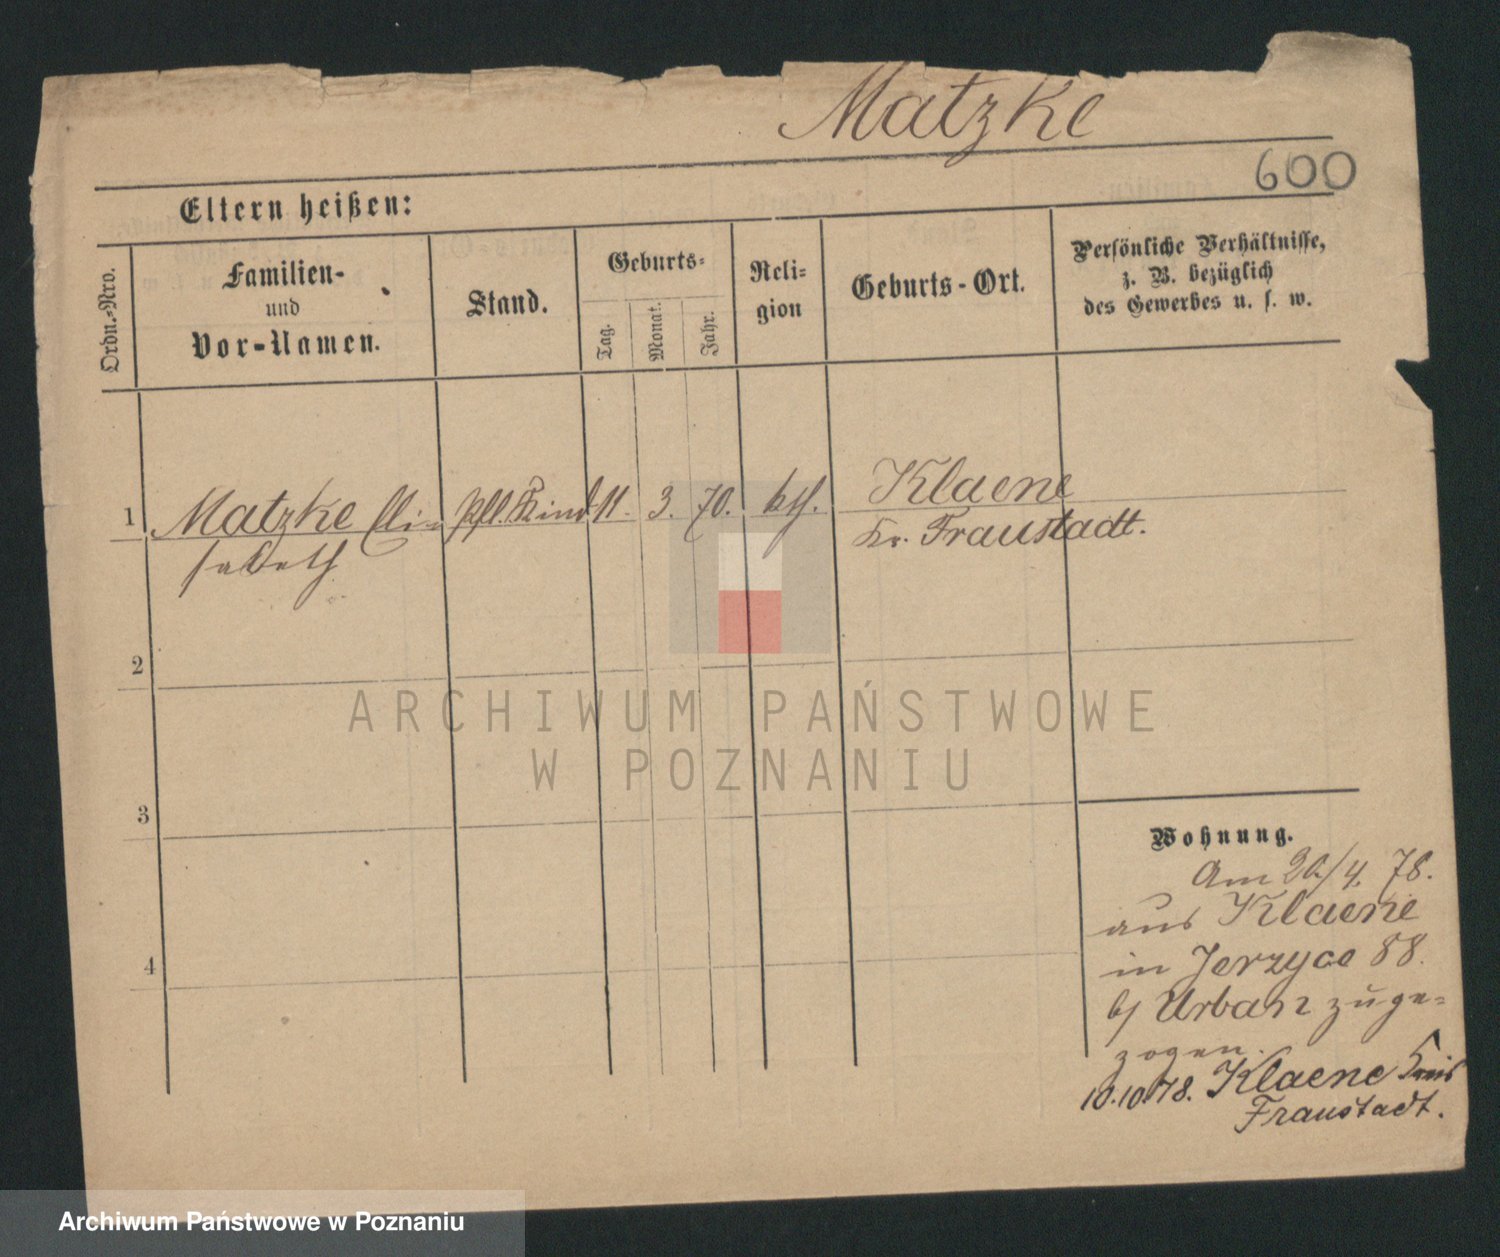 Matzke
600
Eltern heißen:
Ordn.-Nro.
Familien-
und
Vor-Namen.
Stand.
Geburts-
Tag.
Monat.
Jahr.
Reli-
gion
Geburts-Ort.
Persönliche Verhältnisse,
z. B. bezüglich
des Gewerbes u. s. w.
1 Matzke Eli- Pfl. Kind 11. 3. 70. kth. Klaene
sabeth Kr. Fraustadt.
2
3
4
Wohnung.
Am /4. 78.
aus Klaene
in Jerzyce 88.
b/ Urban zuge-
zogen.
10.10.78. Klaene Kreis
Fraustadt.
ARCHIWUM PAŃSTWOWE
W POZNANIU
Archiwum Państwowe w Poznaniu